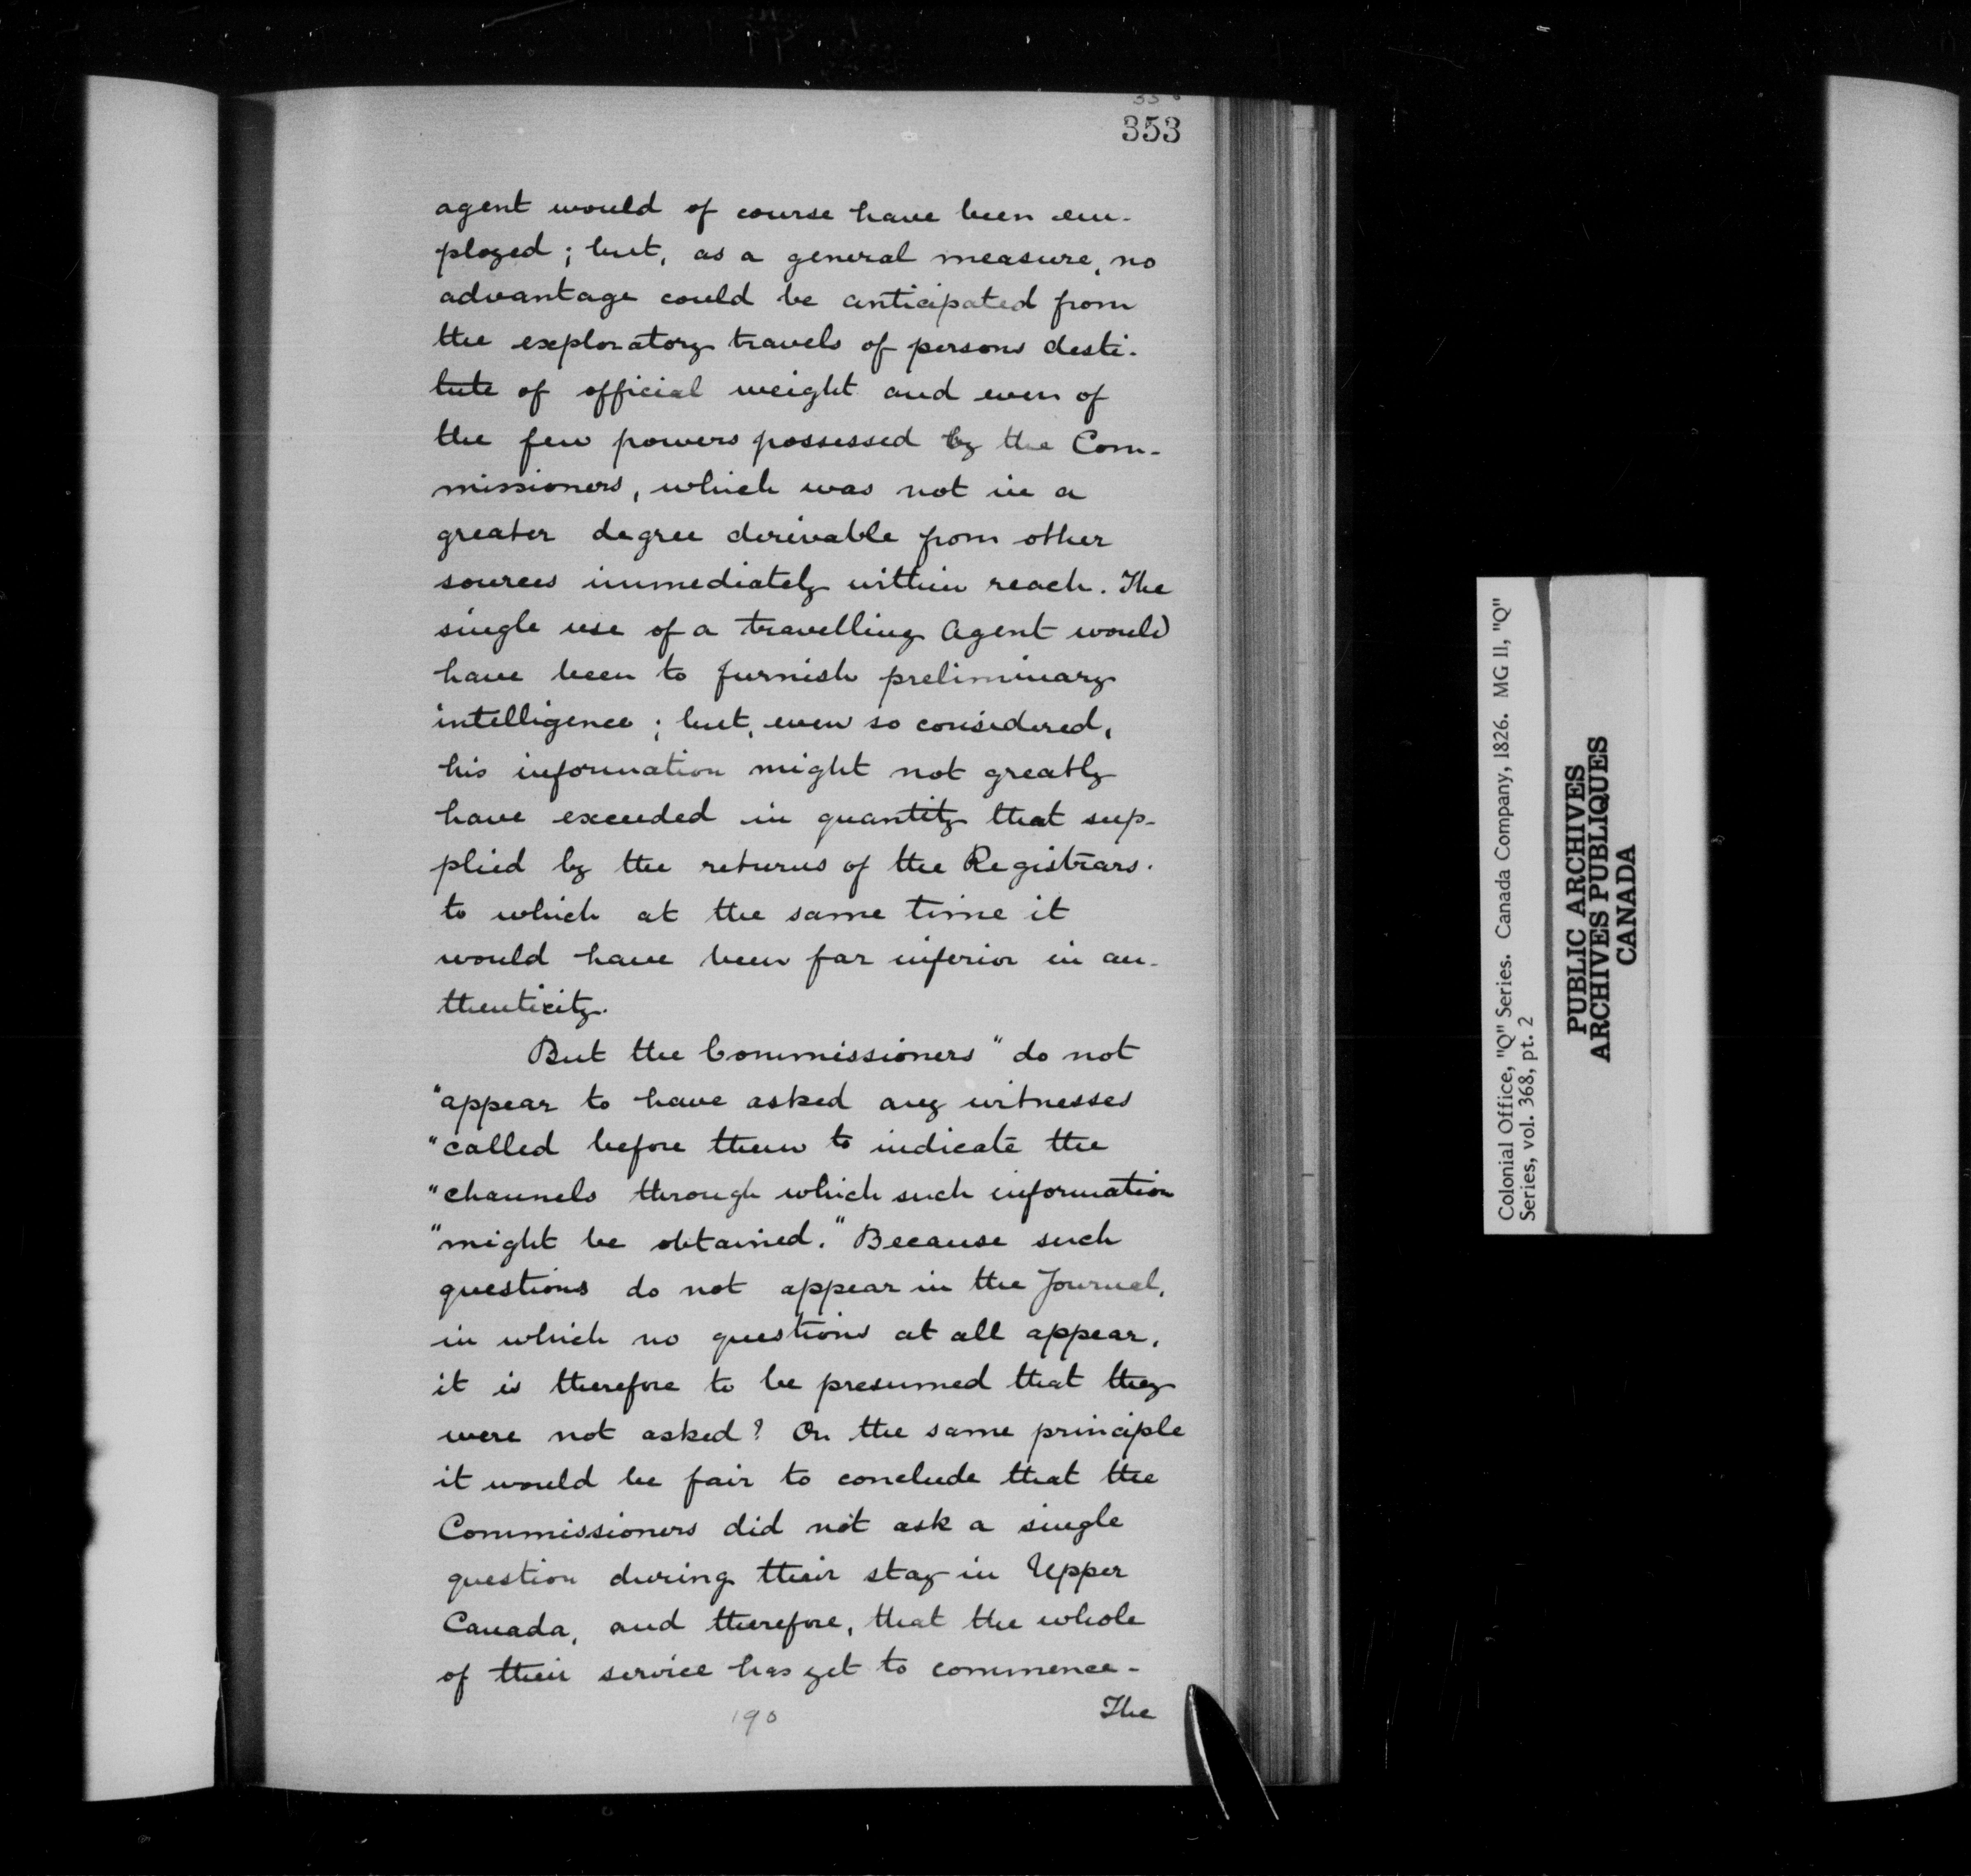 353
agent would of course have been em-
ployed; but, as a general measure, no
advantage could be anticipated from
the exploratory travels of persons desti-
tute of official weight and even of
the few powers possessed by the Com-
missioners, which was not in a
greater degree derivable from other
sources immediately within reach. The
single use of a travelling Agent would
have been to furnish preliminary
intelligence; but, even so considered,
his information might not greatly
have exceeded in quantity that sup-
plied by the returns of the Registrars.
to which at the same time it
would have been far inferior in au-
thenticity.
But the Commissioners "do not
"appear to have asked any witnesses
"called before them to indicate the
"channels through which such information
"might be obtained." Because such
questions do not appear in the Journal,
in which no questions at all appear,
it is therefore to be presumed that they
were not asked? On the same principle
it would be fair to conclude that the
Commissioners did not ask a single
question during their stay in Upper
Canada, and therefore, that the whole
of their service has yet to commence-
The
190
Colonial Office, "Q" Series. Canada Company, 1826. MG 11, "Q"
Series, vol. 368, pt. 2
PUBLIC ARCHIVES
ARCHIVES PUBLIQUES
CANADA